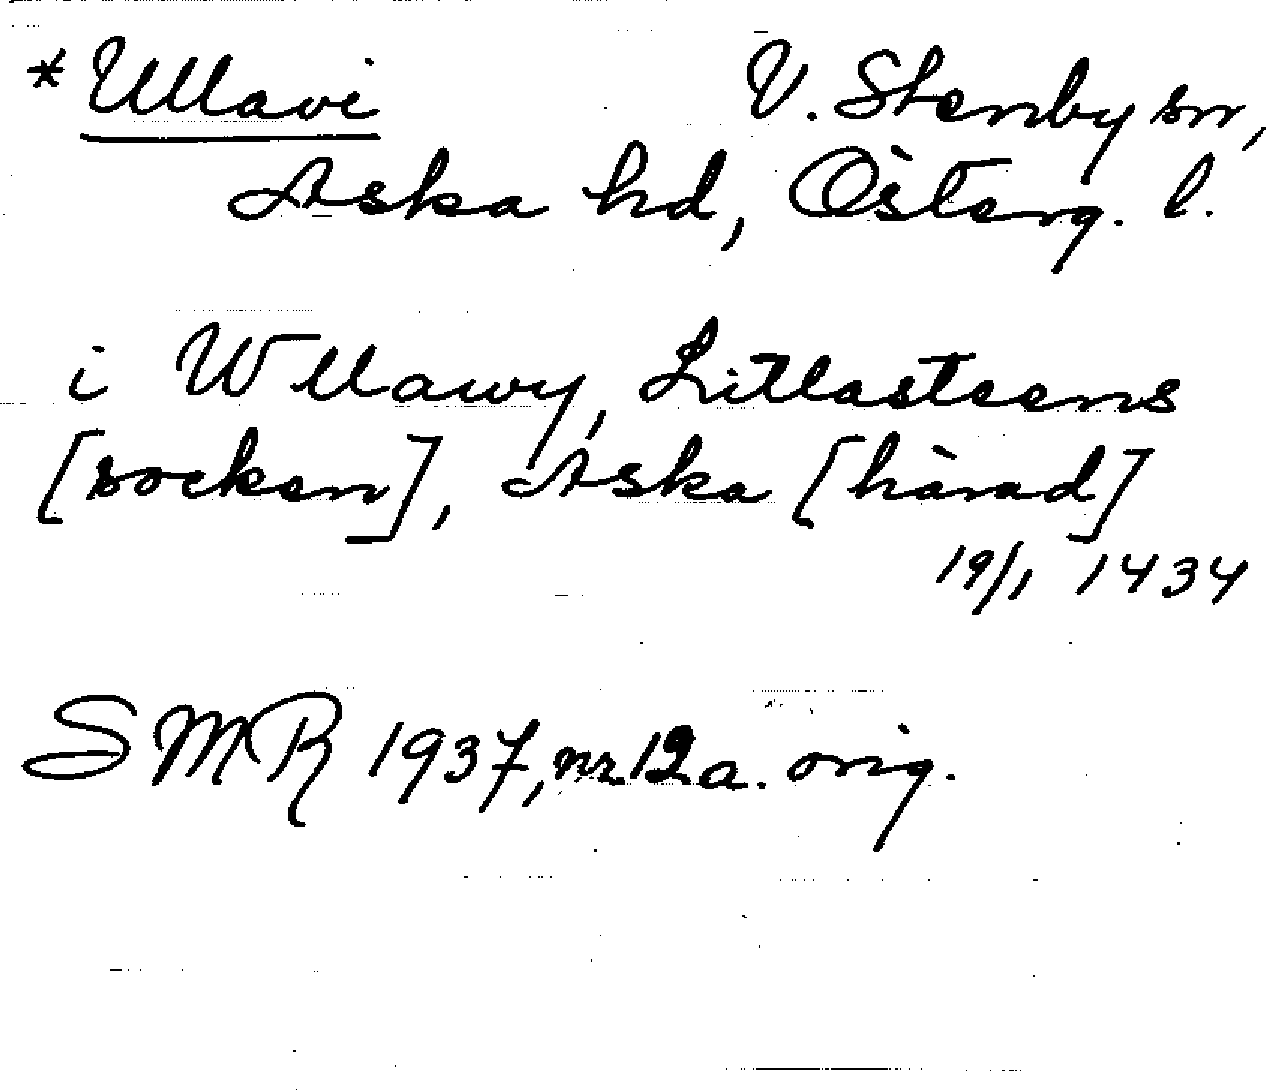 *Ullavi V. Stenby sn,
Aska hd, Österg. l.
i Wllawy, Litlasteens
[socken], Aska [härad]
19/1 1434
SMR 1937, nr 12 a. orig.